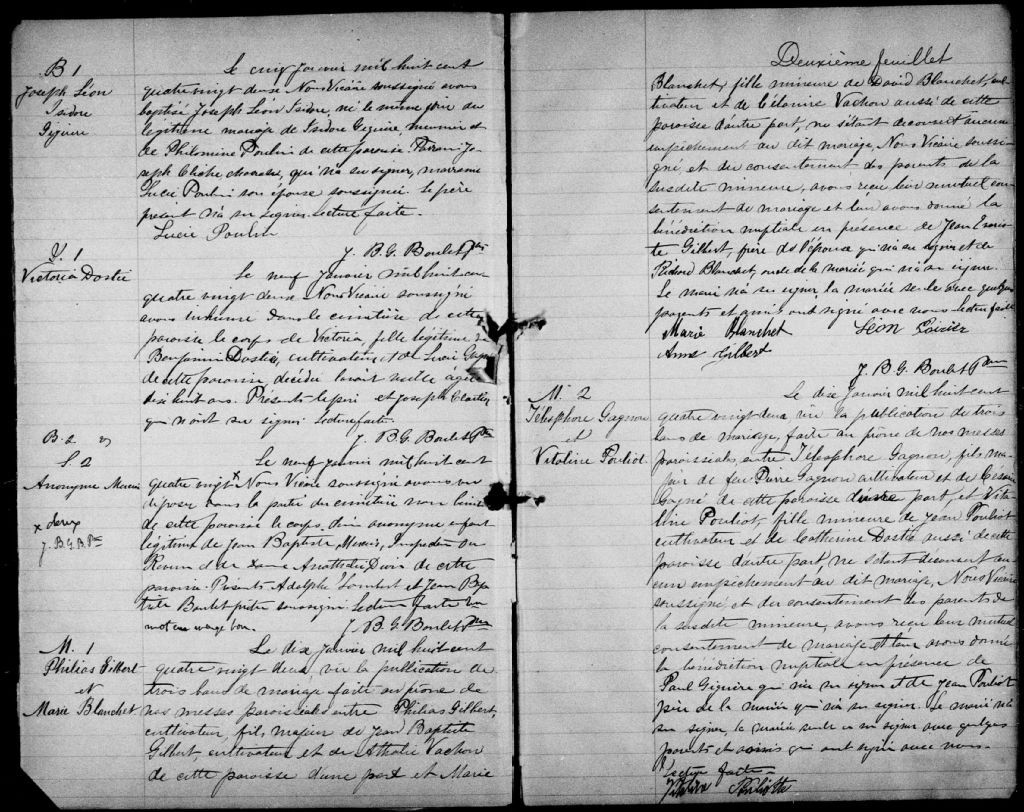 B 1
Joseph Léon
Isidore
Giguère
Le cinq Janvier mil huit cent
quatre vingt deux Nous Vicaire soussigné avons
baptisé Joseph Léon Isidore, né le même jour du
légitime mariage de Isidore Giguère, meunier et
de Philomène Poulin de cette paroisse. Parrain Jo-
seph Cliche qui n'a su signer, marraine
Lucie Poulin son épouse soussignée. Le père
présent n'a su signer. Lecture faite.
Lucie Poulin
J. B. G. Boulet Ptre
S. 1
Victoria Dostie
Le neuf Janvier mil huit cent
quatre vingt deux Nous Vicaire soussigné
avons inhumé dans le cimetière de cette
paroisse le corps de Victoria, fille légitime de
Benjamin Dostie, cultivateur, et de
de cette paroisse, décédée âgée
dix huit ans. Présents le père et Joseph
qui n'ont su signer. Lecture faite.
J. B. G. Boulet Ptre
B. 2
S. 2
Anonyme
x deux
J. B. G. B. Ptre
Le neuf Janvier mil huit cent
quatre vingt x Nous Vicaire soussigné avons
déposé dans la partie du cimetière non bénite
de cette paroisse le corps d'un anonyme enfant
légitime de Jean Baptiste Inspecteur du
Revenu et de Dame de cette
paroisse. Présents Adolphe et Jean Bap-
tiste Boulet prêtre soussigné. Lecture faite Un
mot en marge bon.
J. B. G. Boulet Ptre
M. 1
Philias Gilbert
et
Marie Blanchet
Le dix Janvier mil huit cent
quatre vingt deux, vu la publication de
trois bans de mariage faite au prône de
nos messes paroissiales entre Philias Gilbert,
cultivateur, fils majeur de Jean Baptiste
Gilbert, cultivateur et de Nathalie Vachon
de cette paroisse d'une part et Marie
Deuxième feuillet
Blanchet, fille mineure de David Blanchet, cul-
tivateur et de Célanire Vachon aussi de cette
paroisse d'autre part, ne s'étant découvert aucun
empêchement au dit mariage, Nous Vicaire soussi-
gné et du consentement des parents de la
susdite mineure, avons reçu leur mutuel con-
sentement de mariage et leur avons donné la
bénédiction nuptiale en présence de Jean Evaris-
te Gilbert, frère de l'époux qui n'a su signer et de
Richard Blanchet, oncle de la mariée qui n'a su signer.
Le marié n'a su signer, la mariée seule avec quelques
parents et amis ont signé avec nous. Lecture faite
Marie Blanchet Léon
Anna Gilbert
J. B. G. Boulet Ptre
M. 2
Télesphore Gagnon
et
Vitaline Pouliot
Le dix Janvier mil huit cent
quatre vingt deux vu la publication de trois
bans de mariage, faite au prône de nos messes
paroissiales, entre Télesphore Gagnon, fils ma-
jeur de feu Pierre Gagnon cultivateur et de Césarie
Gagné de cette paroisse d'une part, et Vita-
line Pouliot, fille mineure de Jean Pouliot
cultivateur et de Catherine Dostie aussi de cette
paroisse d'autre part, ne s'étant découvert au-
cun empêchement au dit mariage, Nous Vicaire
soussigné, et du consentement des parents de
la susdite mineure, avons reçu leur mutuel
consentement de mariage et leur avons donné
la bénédiction nuptiale en présence de
Paul Giguère qui n'a su signer et de Jean Pouliot
père de la mariée qui n'a su signer. Le marié n'a
su signer, la mariée seule a su signer avec quelques
parents et amis qui ont signé avec nous.
Lecture faite